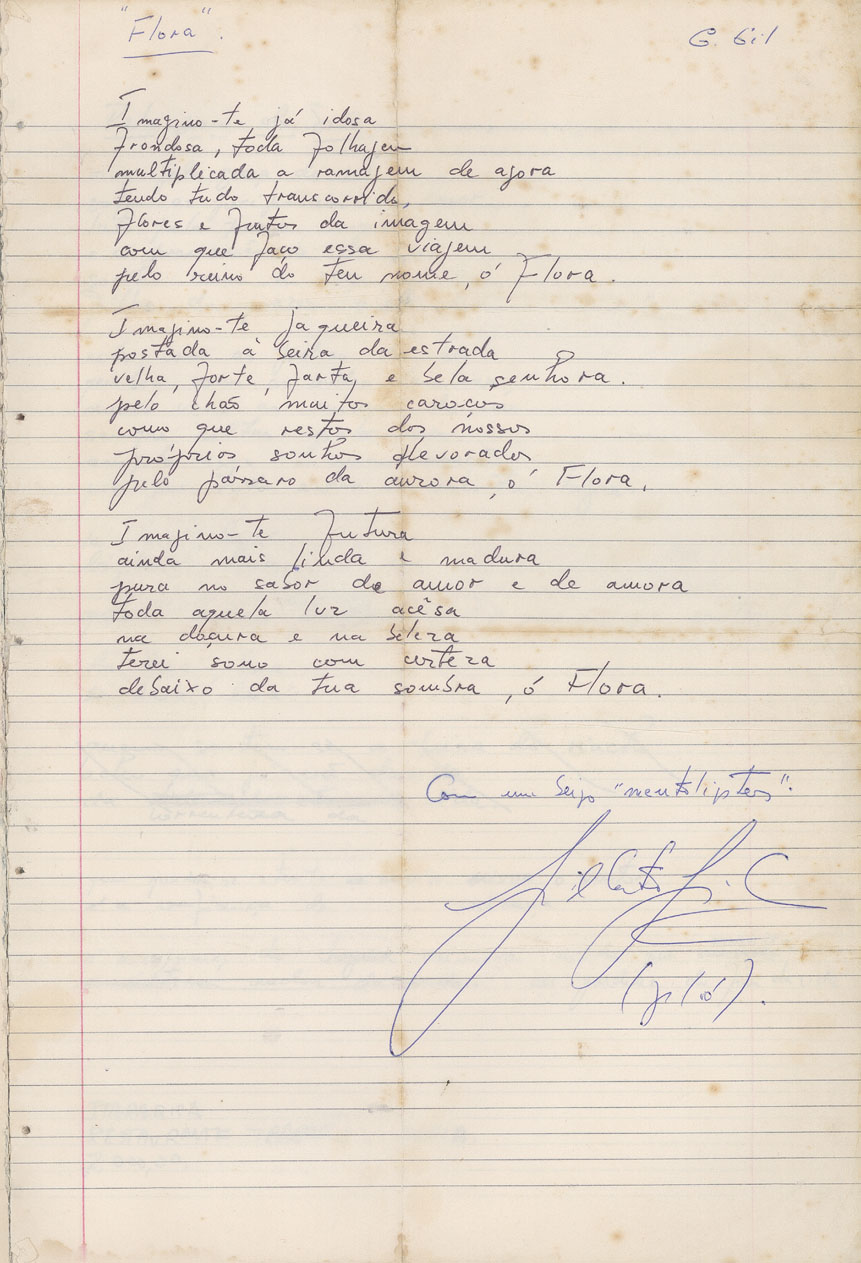 "Flora".
G. Gil
Imagino-te já idosa
frondosa, toda folhagem
multiplicada a ramagem de agora
tendo tudo transcorrido,
flores e frutos da imagem
com que faço essa viagem
pelo reino do teu nome, ó Flora.
Imagino-te jaqueira
postada à beira da estrada
velha, forte, farta, e bela senhora.
pelo chão muitos caroços
como que restos dos nossos
próprios sonhos devorados
pelo pássaro da aurora, ó Flora.
Imagino-te futura
ainda mais linda e madura
pura no sabor de amor e de amora
toda aquela luz acêsa
na doçura e na beleza
terei sono com certeza
debaixo da tua sombra, ó Flora.
Com um beijo
Gilberto Gil